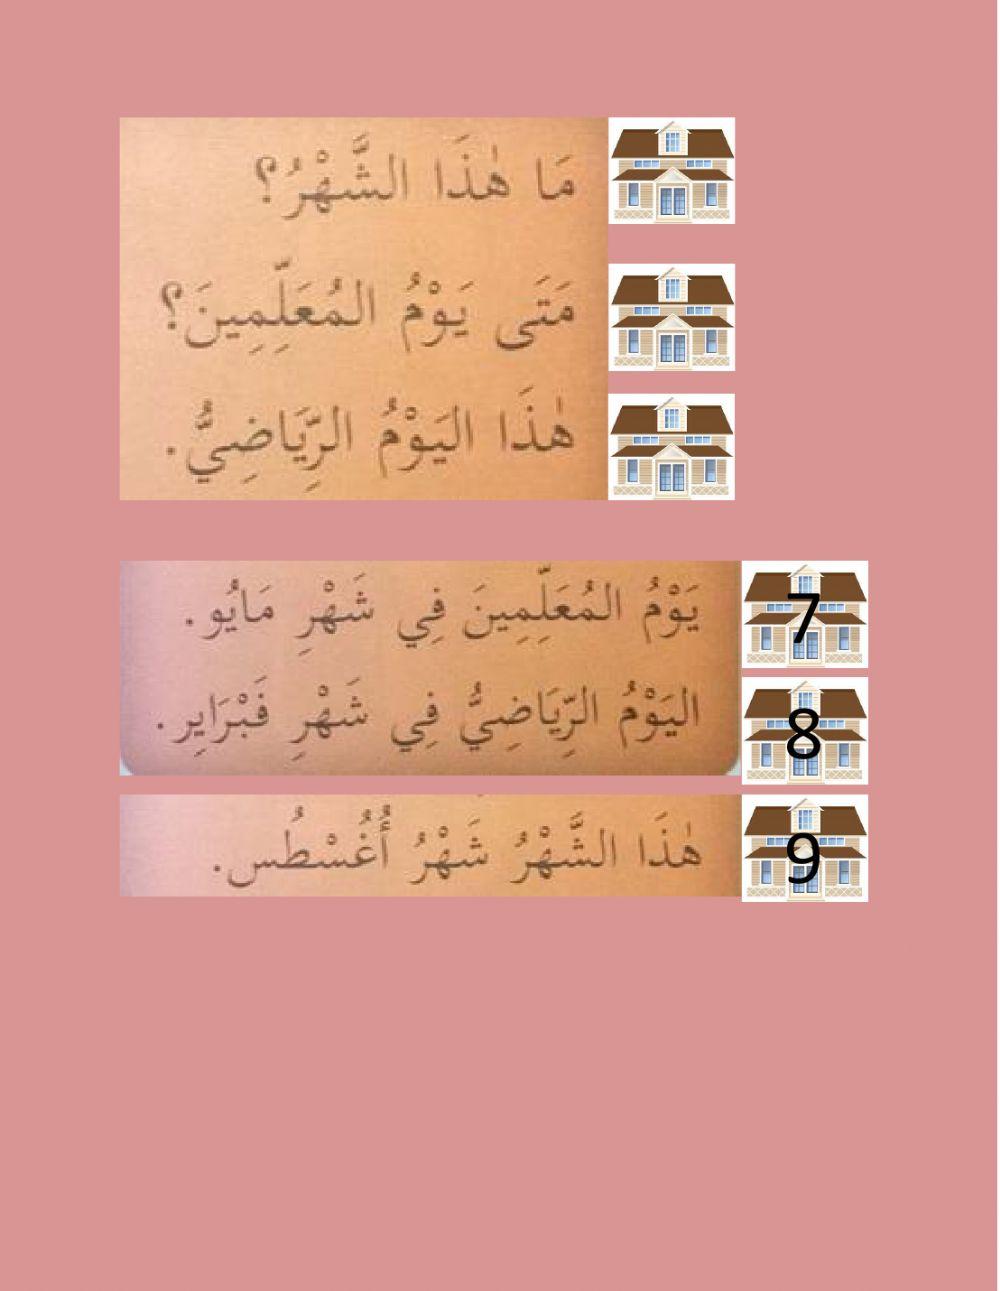 مَا هٰذَا الشَّهْرُ؟
مَتَى يَوْمُ المُعَلِّمِينَ؟
هٰذَا اليَوْمُ الرِّيَاضِيُّ.
يَوْمُ المُعَلِّمِينَ فِي شَهْرِ مَايُو.
7
اليَوْمُ الرِّيَاضِيُّ فِي شَهْرِ فَبْرَايِر.
8
هٰذَا الشَّهْرُ شَهْرُ أُغُسْطُس.
9